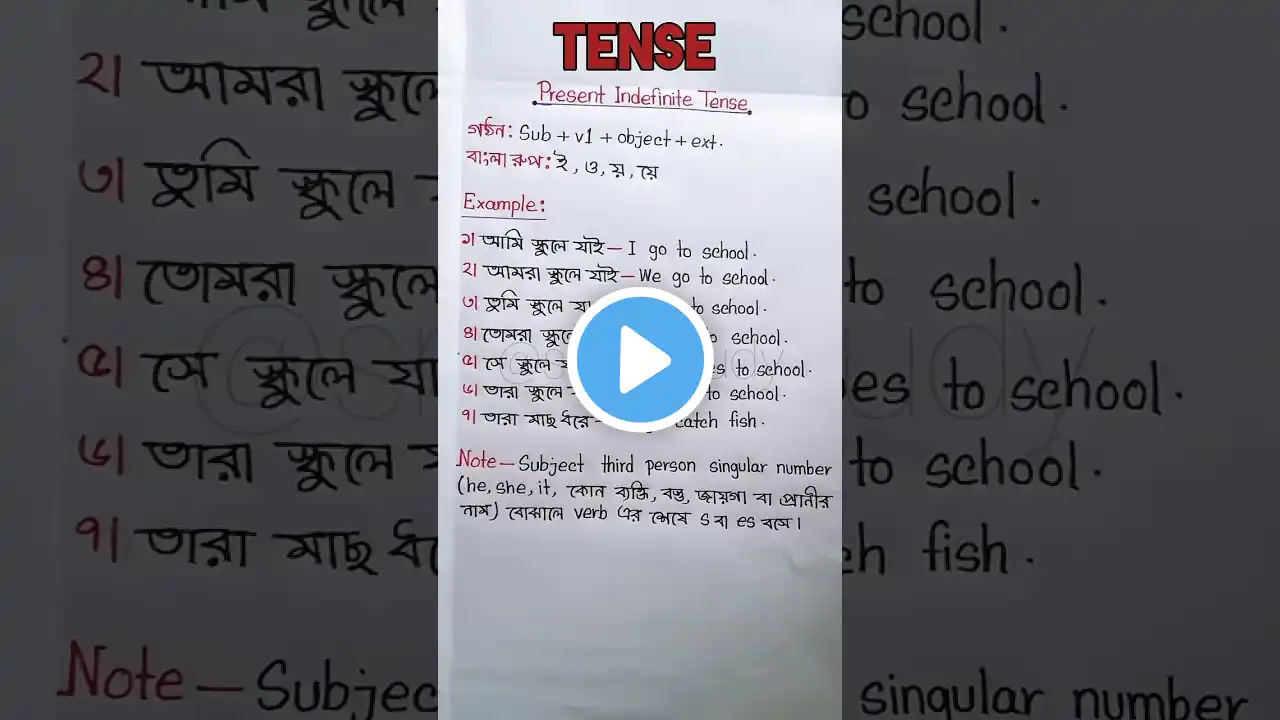 TENSE
Present Indefinite Tense
গঠন: Sub + v1 + object + ext.
বাংলা রুপ: ই, ও, য়, য়ে
Example:
১। আমি স্কুলে যাই – I go to school.
২। আমরা স্কুলে যাই – We go to school.
৩। তুমি স্কুলে to school.
৪। তোমরা স্কুলে school.
৫। সে স্কুলে to school.
৬। তারা স্কুলে to school.
৭। তারা মাছ ধরে – catch fish.
Note – Subject third person singular number
(he, she, it, কোন ব্যক্তি, বস্তু, জায়গা বা প্রানীর
নাম) বোঝালে verb এর শেষে s বা es বসে।